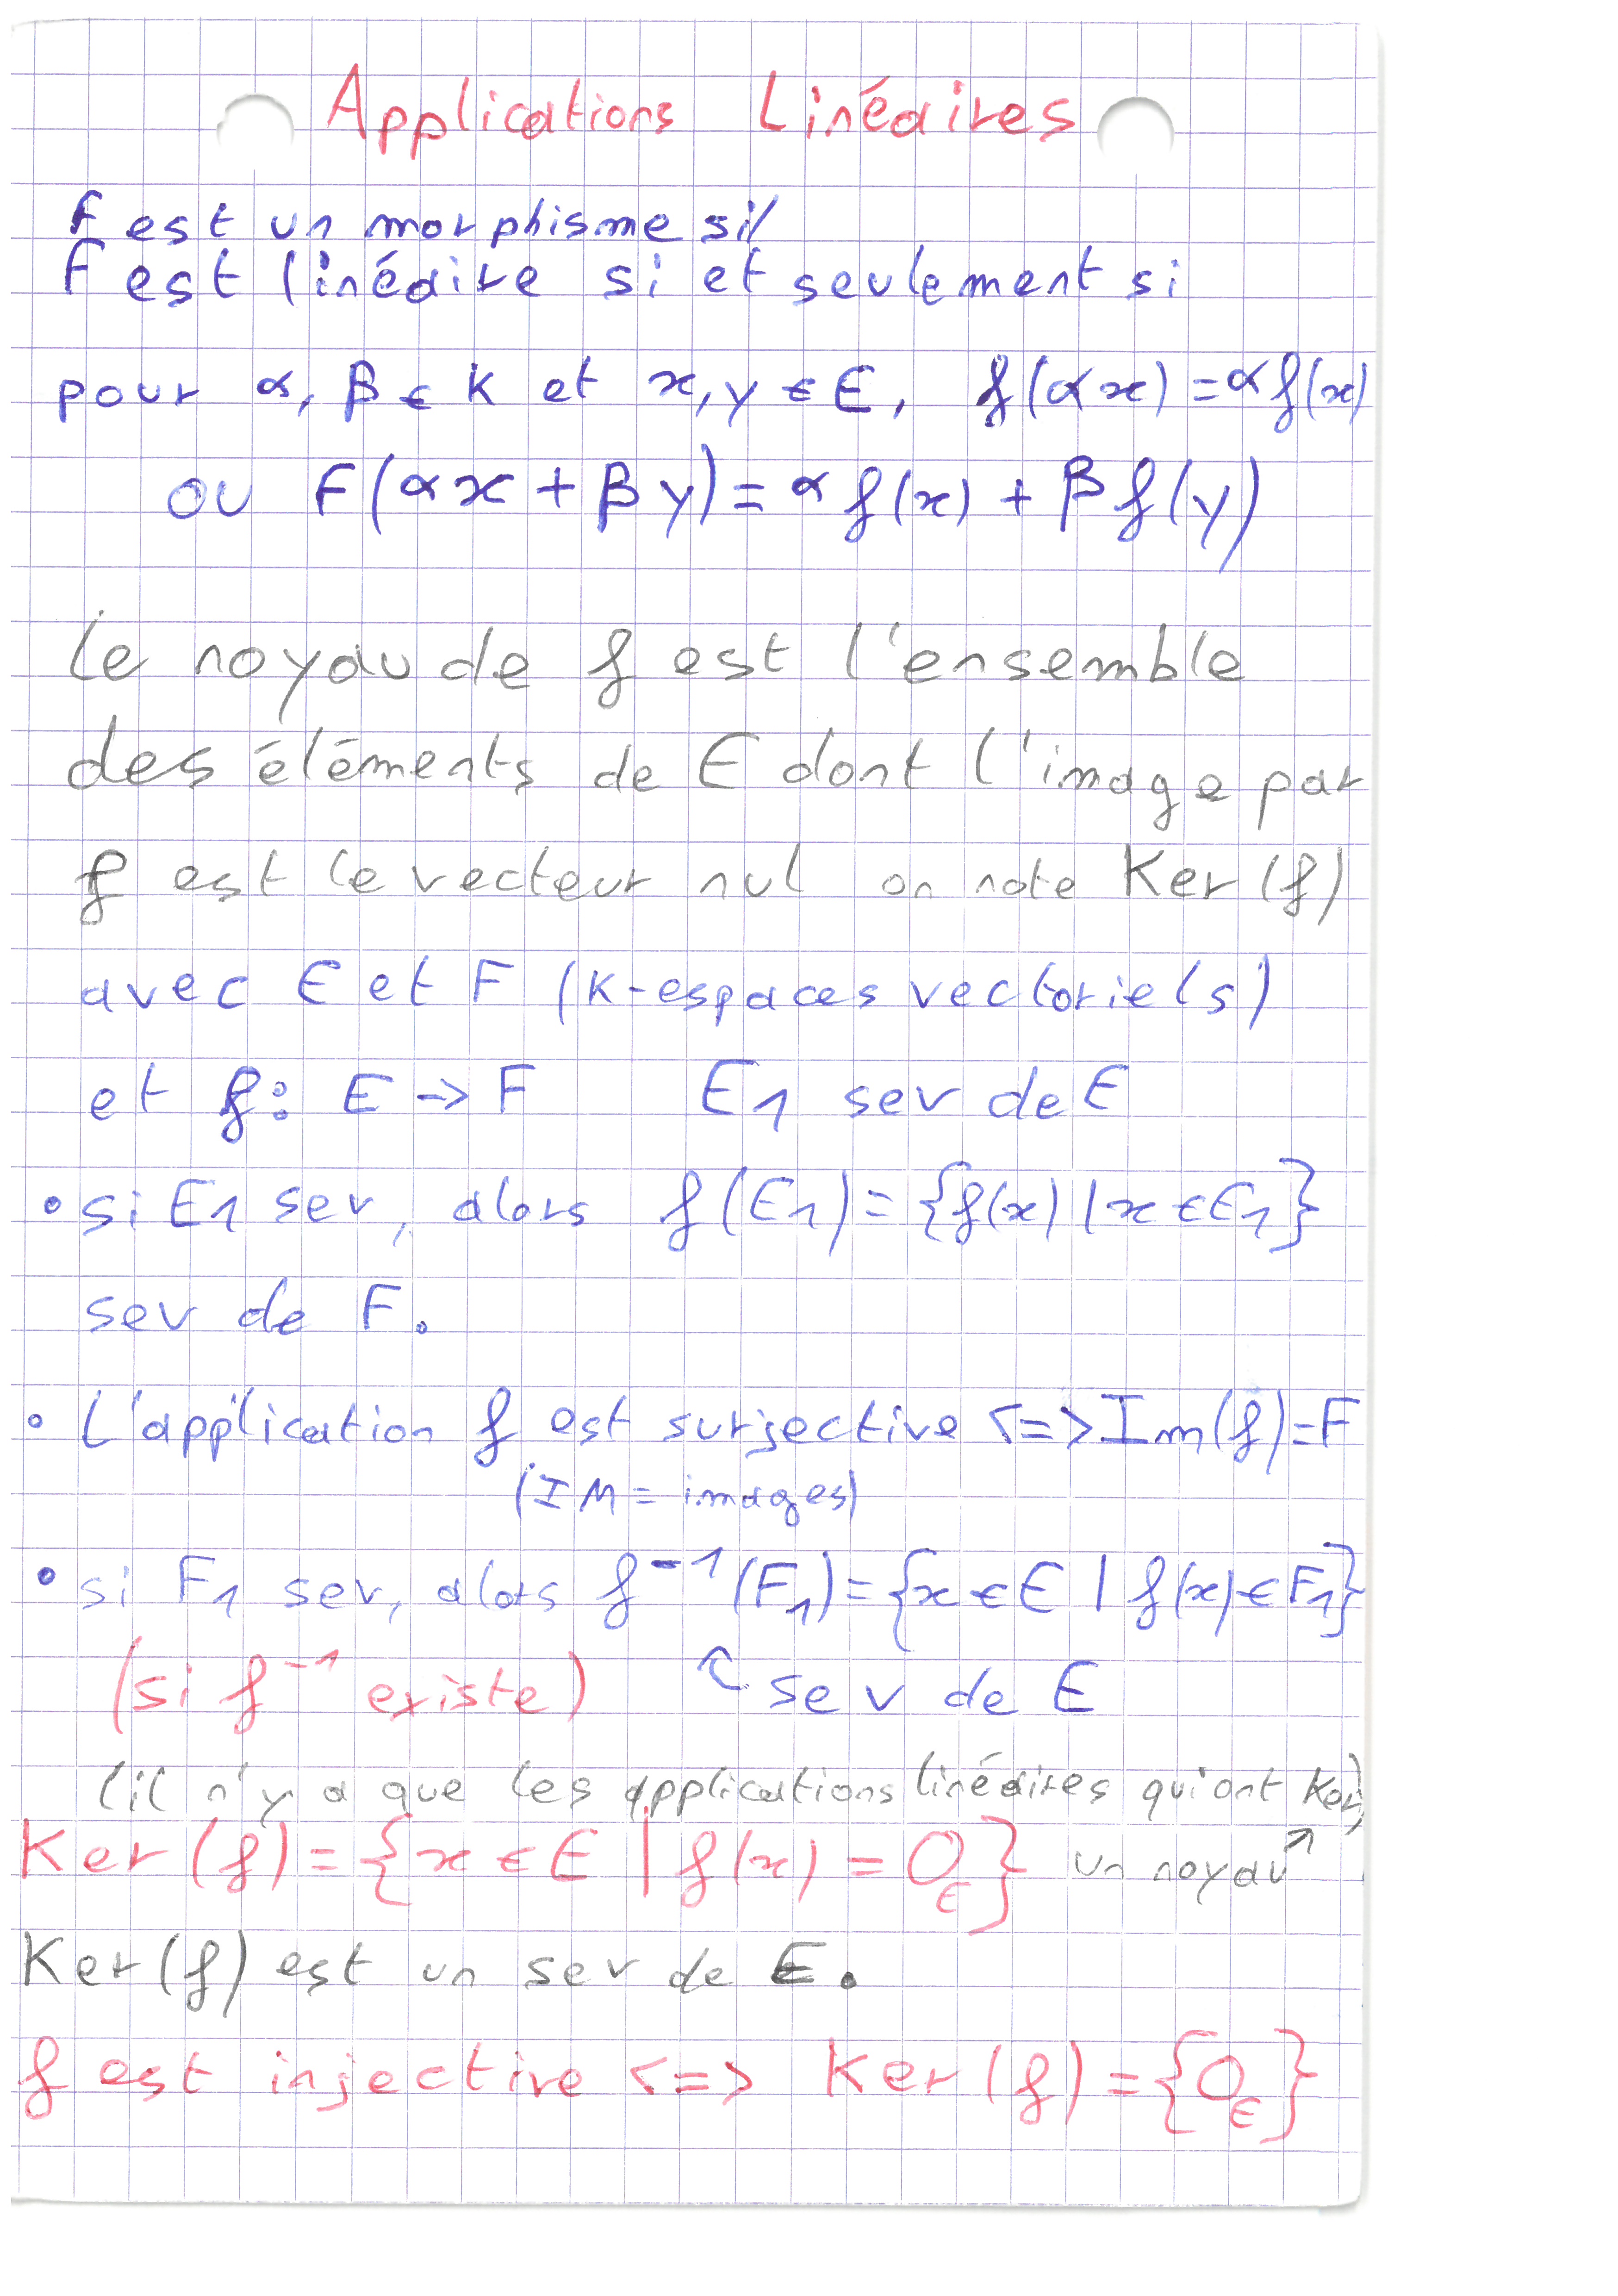 Applications Linéaires
f est un morphisme si/
F est linéaire si et seulement si
pour α, β ∈ K et x, y ∈ E, f(αx) = αf(x)
ou F(αx + βy) = αf(x) + βf(y)
Le noyau de f est l'ensemble
des éléments de E dont l'image par
f est le vecteur nul on note Ker(f)
avec E et F (K-espaces vectoriels)
et f: E -> F E1 sev de E
• si E1 sev, alors f(E1) = {f(x) | x ∈ E1}
sev de F.
• L'application f est surjective <=> Im(f) = F
(IM = images)
• si F1 sev, alors f⁻¹(F1) = {x ∈ E | f(x) ∈ F1}
(si f⁻¹ existe) sev de E
(il n'y a que les applications linéaires qui ont Ker)
Ker(f) = {x ∈ E | f(x) = 0E} un noyau ↗
Ker(f) est un sev de E.
f est injective <=> Ker(f) = {0E}